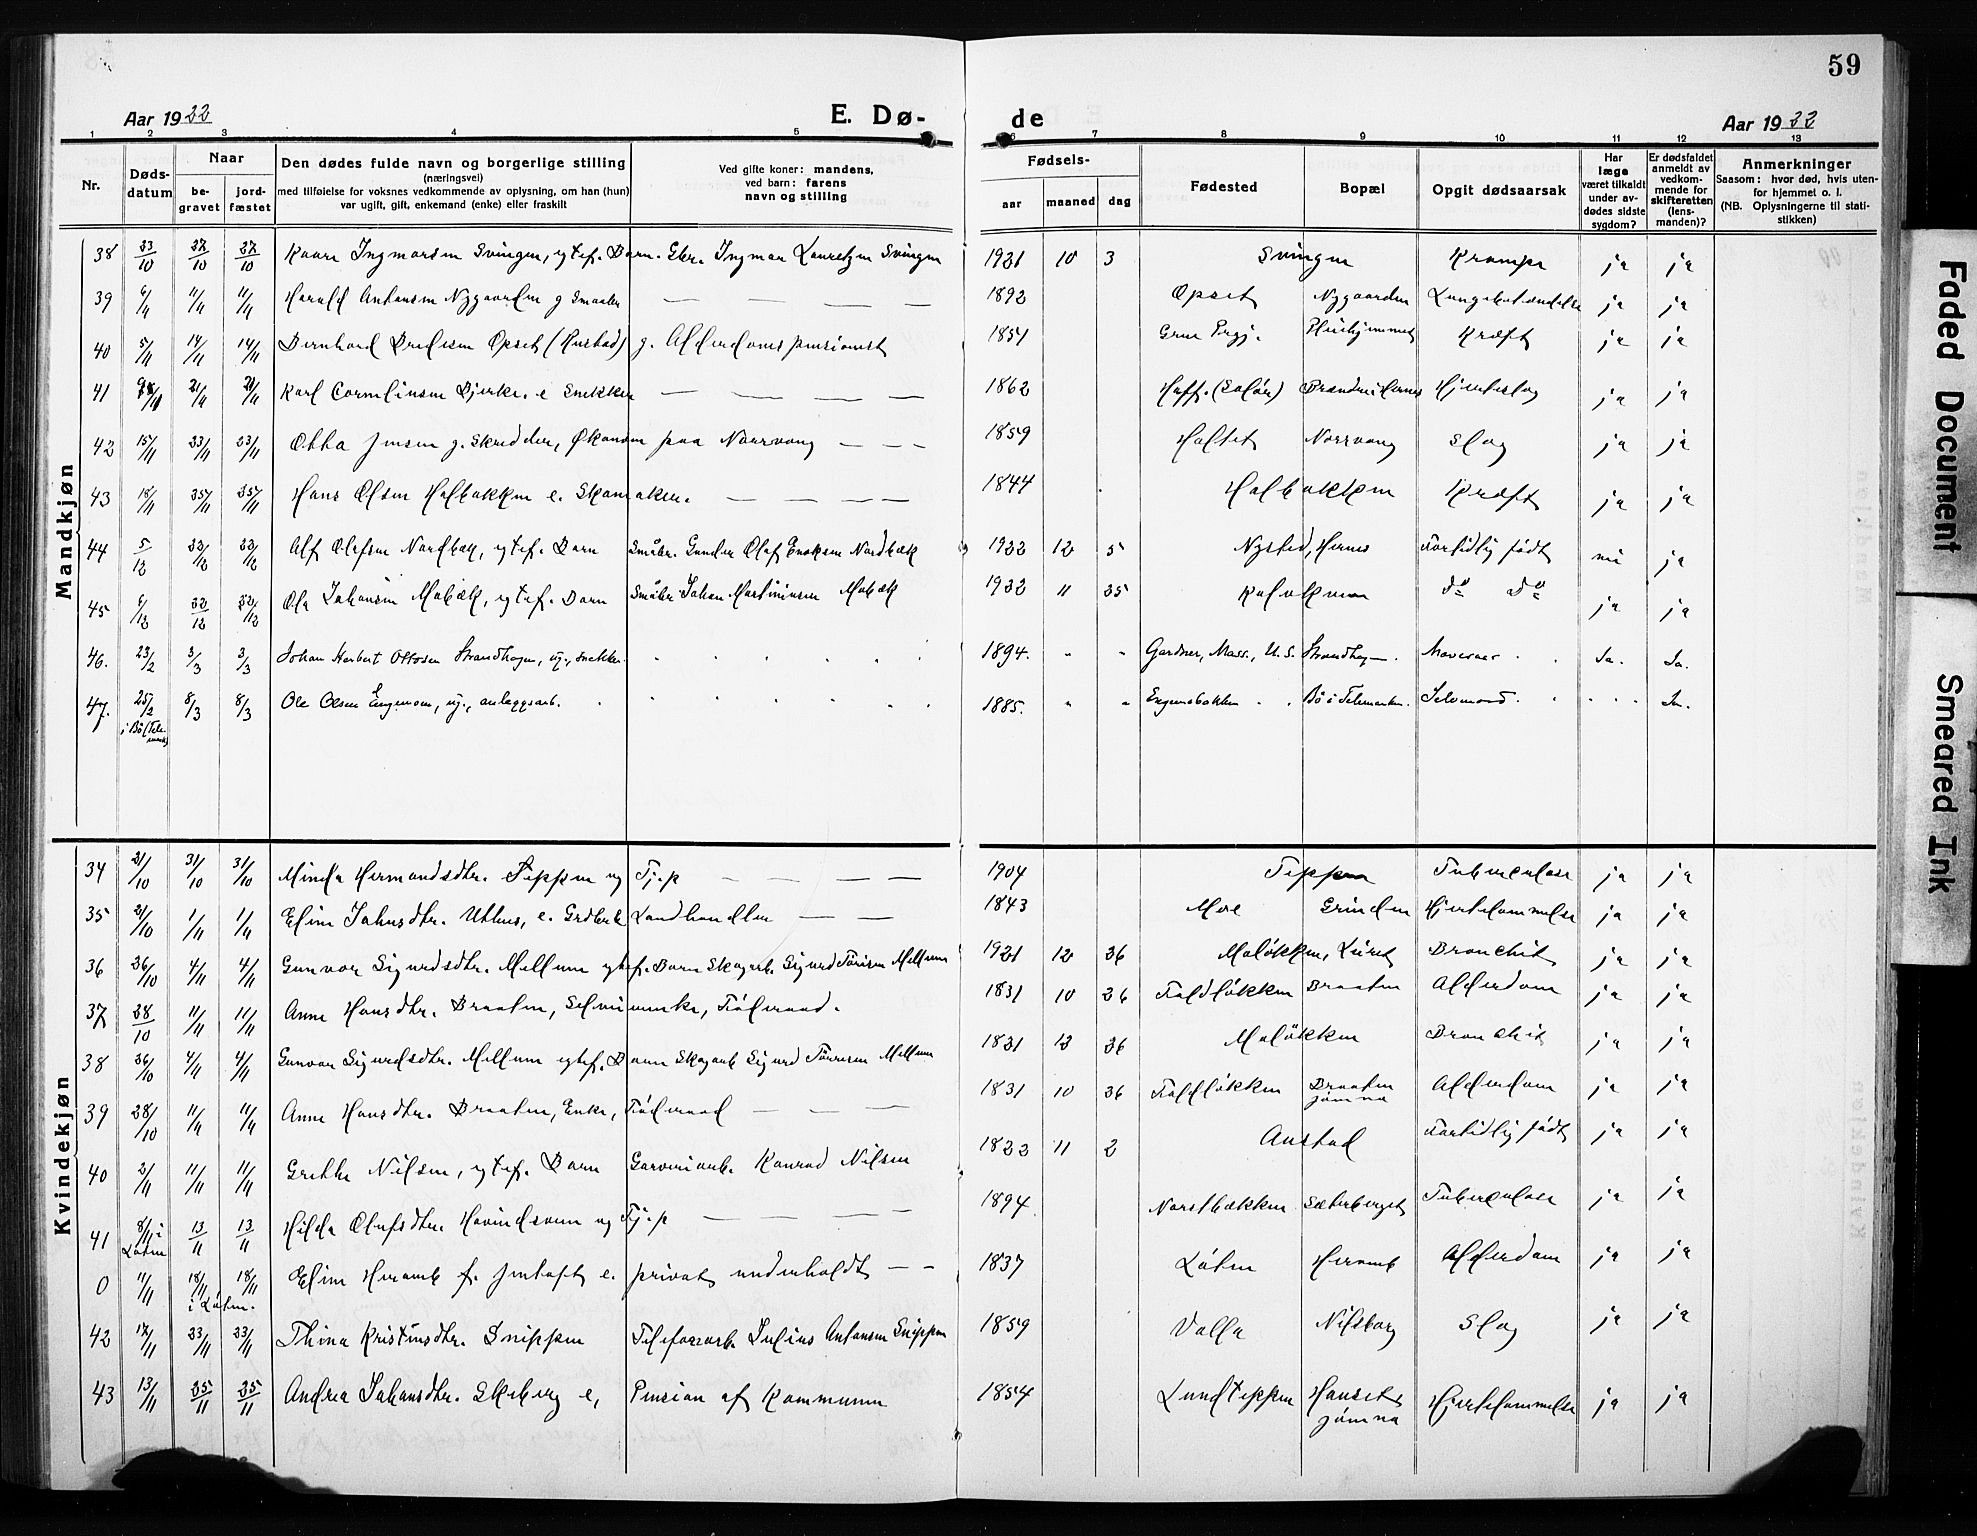 59
Aar 1922
E. Dø-
de
Aar 1922
1 2 3 4 5 6 7 8 9 10 11 12 13
Nr.
Døds-
datum
Naar
be-
gravet
jord-
fæstet
Den dødes fulde navn og borgerlige stilling
(næringsvei)
med tilføielse for voksnes vedkommende av oplysning, om han (hun)
var ugift, gift, enkemand (enke) eller fraskilt
Ved gifte koner: mandens,
ved barn: farens
navn og stilling
Fødsels-
aar
maaned
dag
Fødested
Bopæl
Opgit dødsaarsak
Har
læge
været tilkaldt
under av-
dødes sidste
sygdom?
Er dødsfaldet
anmeldt av
vedkom-
mende for
skifteretten
(lens-
manden)?
Anmerkninger
Saasom: hvor død, hvis uten-
for hjemmet o. l.
(NB. Oplysningerne til stati-
stikken)
Mandkjøn
38 23/10 27/10 27/10 Kaare Ingmarsen Svingen, egtef. Barn. Gbr. Ingmar Lauritzen Svingen 1921 10 3 Svingen Krampe ja ja
39 6/11 11/11 11/11 Harald Antonsen Nygaarden g Smaabr — — — — 1892 Opset Nygaarden Lungebetændelse ja ja
40 5/11 14/11 14/11 Bernhard Opset (Hustad) g. Alderdomspensionist 1851 Grue Prgj. Pleiehjemmet Kræft ja ja
41 21/11 21/11 Karl Bjerke. e Snekker — — — — 1862 Hoff. (Solør) Hjerteslag ja ja
42 15/11 23/11 23/11 Otto Jensen g. Skredder, Økonom paa Norrvang — — — 1859 Haltet Norrvang Slag ja ja
43 18/11 25/11 25/11 Hans Olsen Holbakken e. Skomaker. — — — — 1844 Holbakken Kræft ja ja
44 5/12 22/12 22/12 Alf Olafsen Nordbæk, egtef. Barn Småbr. Gunder Olaf Enoksen Nordbæk 1922 12 5 Nysted, Hernes Fortidlig født nei ja
45 6/12 22/12 22/12 Ola Johansen Mobæk, egtef. Barn Småbr Johan Martiniusen Mobæk 1922 11 25 do do ja ja
46. 23/2 3/3 3/3 Johan Herbert Ottosen Strandhagen, ug., snekker. 1894. " " Gardner, Mass., U.S. Strandhagen. Ja. Ja.
47. 25/2 8/3 8/3 Ole Olsen Engemoen, ug., anleggsarb. 1885. " " Engensbakken Bø i Telemarken. Selvmord Ja.
i Bø (Tele-
mark)
Kvindekjøn
34 21/10 31/10 31/10 Minda Hermandsdtr. Teppen ug Tj.p — — — — 1904 Teppen Tuberculose ja ja
35 21/10 1/11 1/11 Eline Johnsdtr. Uthus, e. Landhandler — — — 1843 Moe Grinden Hjertelammelse ja ja
36 26/10 4/11 4/11 Gunvor Sigurdsdtr. Mellum egtef. Barn Skogarb. Sigurd Mellum 1921 12 26 Moløkken, Bronchit ja ja
37 28/10 11/11 11/11 Anne Hansdtr. Braaten, Føderaad. 1831 10 26 Foldløkken Braaten Alderdom ja ja
38 26/10 4/11 4/11 Gunvor Sigurdsdtr. Mellum egtef. Barn Skogarb Sigurd Mellum 1821 12 26 Moløkken Bronchit ja ja
39 28/10 11/11 11/11 Anne Hansdtr. Braaten, Enke, Føderaad — — — 1831 10 26 Foldløkken Braaten Jømna Alderdom ja ja
40 2/11 11/11 11/11 Grethe Nilsen, egtef. Barn Garveriarb. Konrad Nilsen 1822 11 2 Anstad Fortidlig født ja ja
41 8/11 i Løten 13/11 13/11 Hilda Olufsdtr. Havindsveen ug Tj.p — — — — 1894 Norstbækken Sæterberget Tuberculose ja ja
0 11/11 18/11 18/11 Eline Heramb f. e. privat underholdt — — 1837 Løten Heramb Alderdom ja ja
i Løten.
42 17/11 23/11 23/11 Thina Kristinsdtr. Snippen Julius Antonsen Snippen 1859 Valla Nilsborg Slag ja ja
43 13/11 25/11 25/11 Andrea Johansdtr. Skeberg e, Pension af Kommunen 1854 Lundteppen Hauset Jømna Hjertelammelse ja ja
Faded Document
Smeared Ink